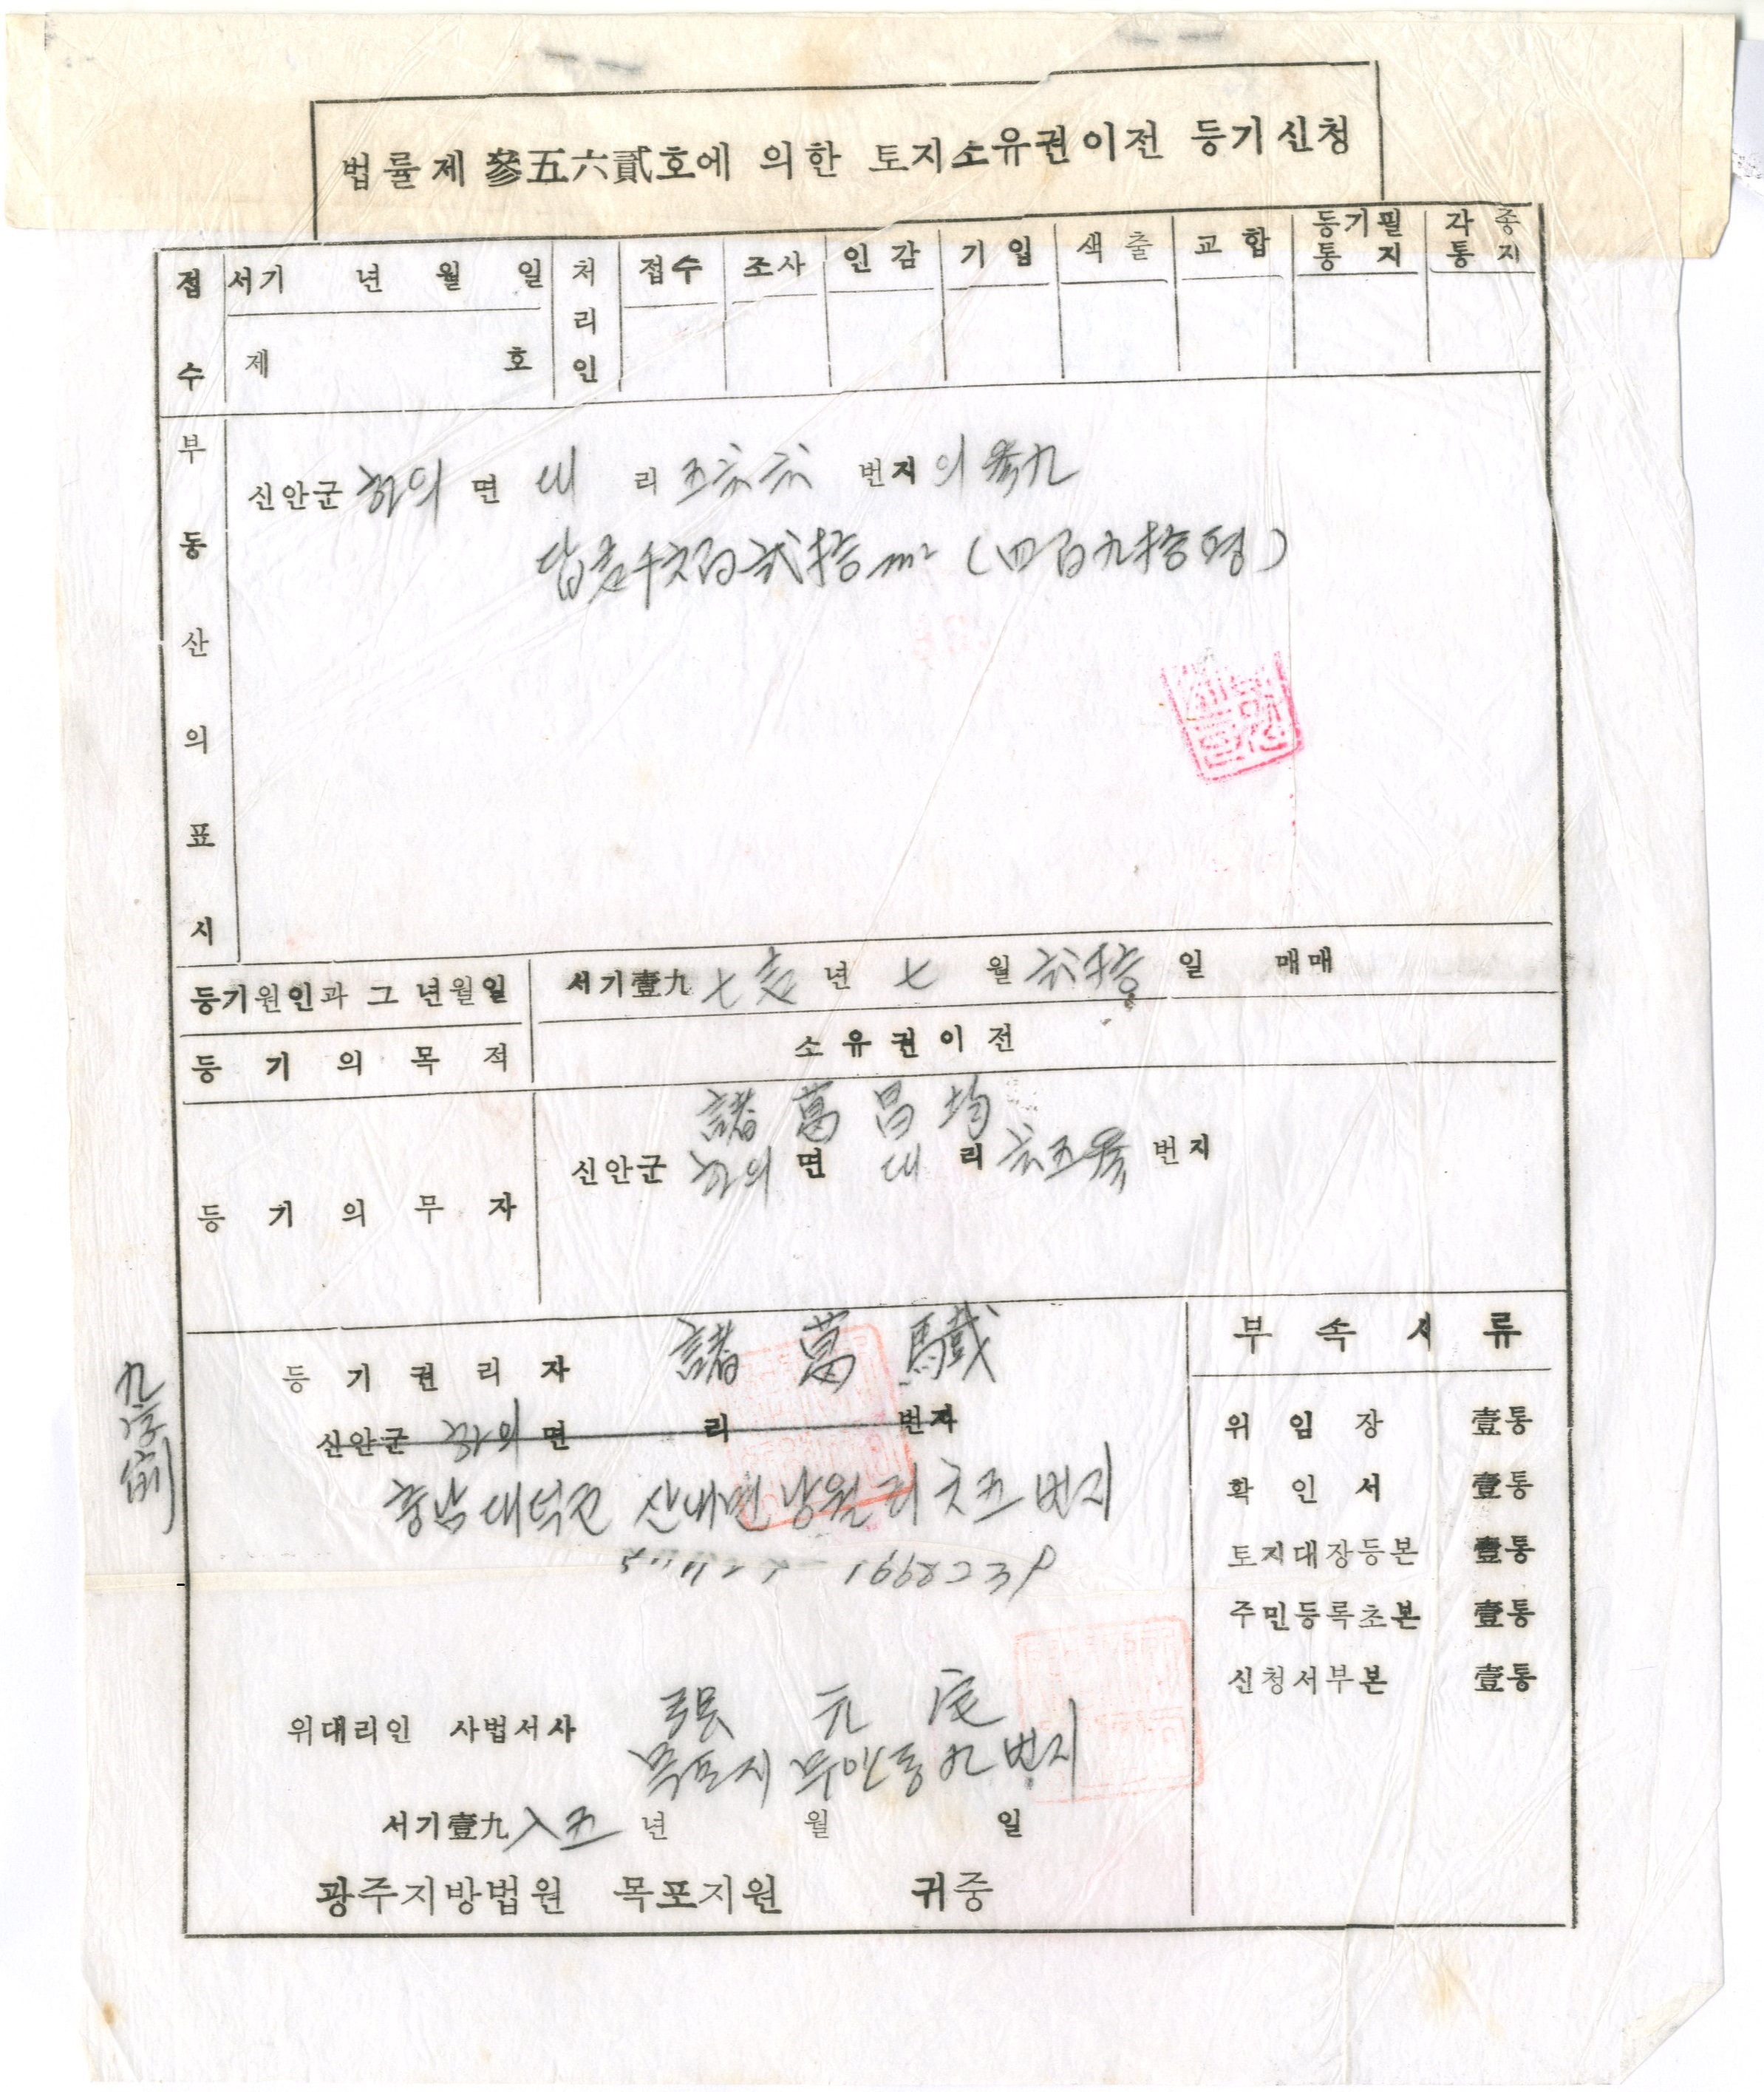 법률제 參五六貳호에 의한 토지소유권이전 등기신청
접수 서기 년 월 일 처리인 접수 조사 인감 기입 색출 교합 등기필통지 각종통지
제 호
부동산의표시
신안군 하의 면 대 리 五六六 번지의 參九
답 壹千六百貳拾㎡ (四百九拾평)
등기원인과 그 년월일 서기壹九七壹년 七 월 貳拾 일 매매
등기의 목적 소유권이전
諸葛昌均
등기의무자 신안군 하의 면 대 리 六五參 번지
등기권리자 諸葛
신안군 하의 면 리 번지
충남 대덕군 산내면 낭월리 六五 번지
1668239
九字削
부속서류
위임장 壹통
확인서 壹통
토지대장등본 壹통
주민등록초본 壹통
신청서부본 壹통
위대리인 사법서사 張元
목포시 무안동 九번지
서기壹九八五 년 월 일
광주지방법원 목포지원 귀중